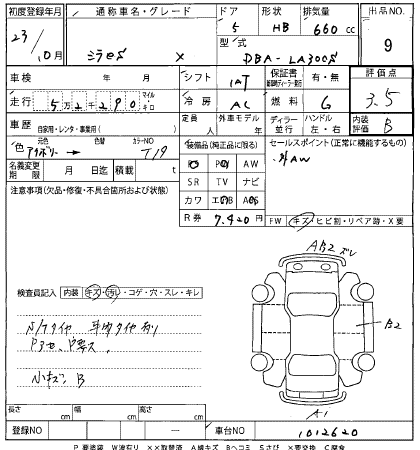 初度登録年月 通称車名・グレード ドア 形状 排気量 出品NO.
23/10月 ミラeS X 5 HB 660 cc 9
型式 DBA-LA300S
車検 年 月 シフト IAT 保証書 有・無 評価点
走行 5万2千290 マイル キロ 冷房 AC 燃料 G 3.5
車歴 自家用・レンタ・事業用( ) 定員 人 外車モデル 年 ディーラー 並行 ハンドル 左・右 内装評価 B
色 元色 アイボリー → 色替 カラーNO T19 装備品(純正品に限る) セールスポイント(正常に機能するもの)
名義変更期限 月 日 積載 t PS PW AW 外AW
注意事項(欠品・修復・不具合箇所および状態) SR TV ナビ
カワ エアB ABS
R券 7,420 円 FW キズ・ヒビ割・リペア跡・X要
AB2 ズレ
検査員記入 内装 キズ・汚レ・コゲ・穴・スレ・キレ
B2
S/Tタイヤ
小キズ B
A1
長さ cm 幅 cm 高さ cm
登録NO ー 車台NO 1012620
P 要塗装 W波有り ××取替済 A線キズ Bヘコミ Sさび ×要交換 C腐食